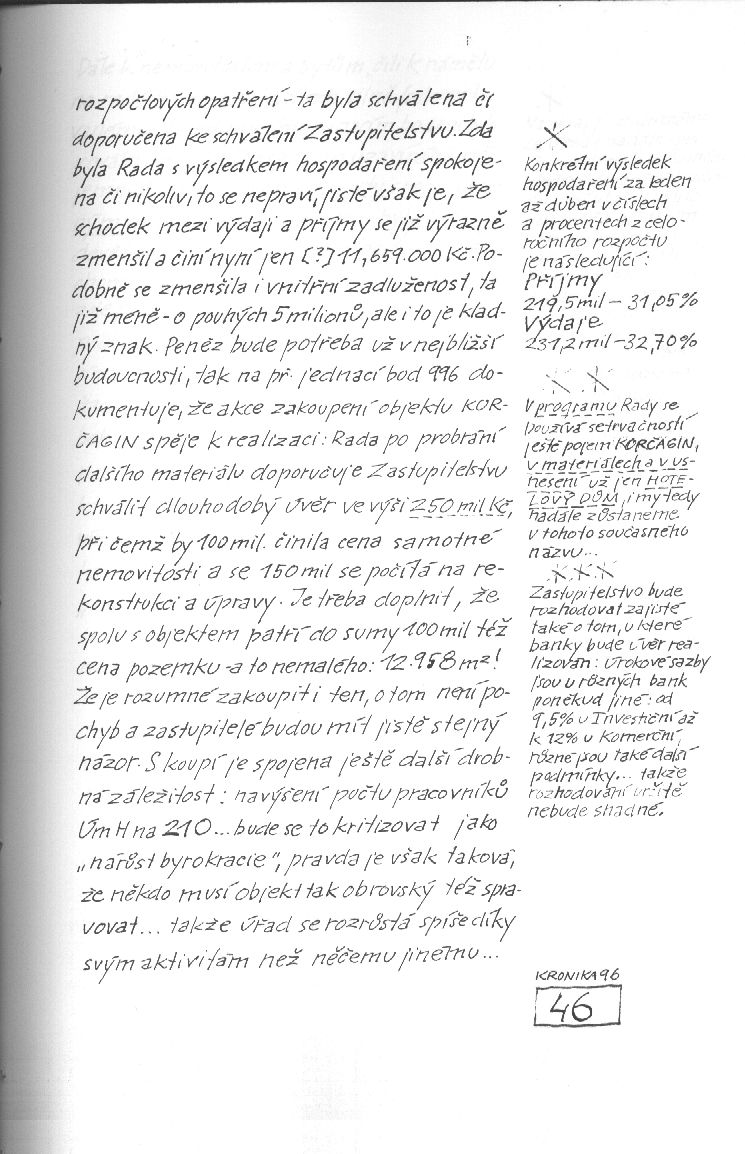 rozpočtových opatření - ta byla schválena či
doporučena ke schválení Zastupitelstvu. Zda
byla Rada s výsledkem hospodaření spokoje-
na či nikoliv, to se nepraví, jisté však je, že
schodek mezi výdaji a příjmy se již výrazně
zmenšil a činí nyní jen [?] 11,659.000 Kč. Po-
dobně se zmenšila i vnitřní zadluženost, ta
již méně - o pouhých 5 milionů, ale i to je klad-
ný znak. Peněz bude potřeba už v nejbližší
budoucnosti, tak na př. jednací bod 996 do-
kumentuje, že akce zakoupení objektu KOR-
ČAGIN spěje k realizaci: Rada po probrání
dalšího materiálu doporučuje Zastupitelstvu
schválit dlouhodobý úvěr ve výši 250 mil Kč,
při čemž by 100 mil. činila cena samotné
nemovitosti a se 150 mil se počítá na re-
konstrukci a úpravy. Je třeba doplnit, že
spolu s objektem patří do sumy 100 mil též
cena pozemku - a to nemalého: 12.958 m²!
Že je rozumné zakoupit i ten, o tom není po-
chyb a zastupitelé budou mít jistě stejný
názor. S koupí je spojena ještě další drob-
ná záležitost: navýšení počtu pracovníků
ÚmH na 210... bude se to kritizovat jako
„nárůst byrokracie", pravda je však taková,
že někdo musí objekt tak obrovský též spra-
vovat... takže úřad se rozrůstá spíše díky
svým aktivitám než něčemu jinému...
Konkrétní výsledek
hospodaření za leden
až duben v číslech
a procentech z celo-
ročního rozpočtu
je následující:
Příjmy
219,5 mil - 31,05%
Výdaje
231,2 mil - 32,70%
V programu Rady se
používá setrvačností
ještě pojem KORČAGIN,
v materiálech a v us-
nesení už jen HOTE-
LOVÝ DŮM, i my tedy
nadále zůstaneme
u tohoto současného
názvu...
Zastupitelstvo bude
rozhodovat zajisté
také o tom, u které
banky bude úvěr rea-
lizován: úrokové sazby
jsou u různých bank
poněkud jiné: od
9,5% u Investiční až
k 12% u Komerční,
různé jsou také další
podmínky... takže
rozhodování určitě
nebude snadné.
KRONIKA 96
46